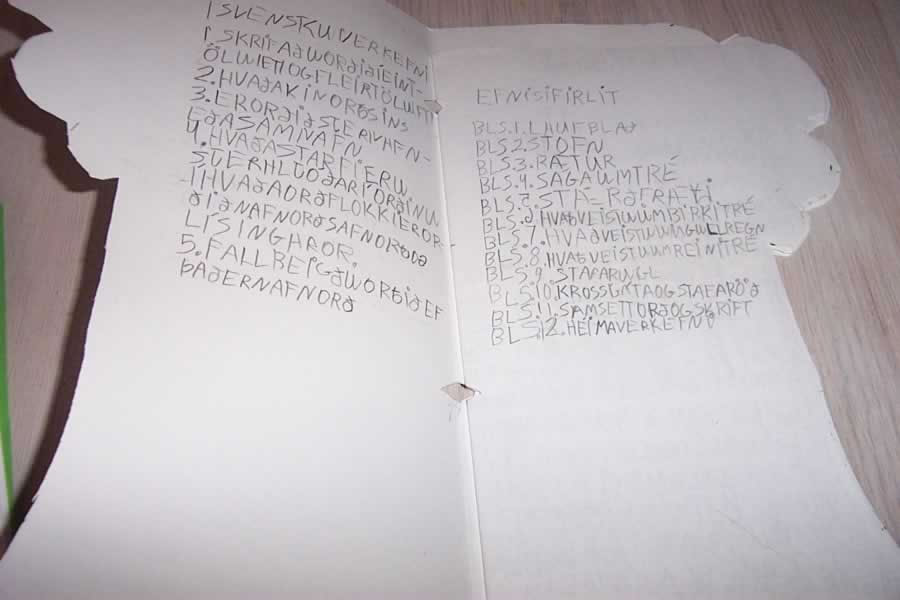 ÍSLENSKUVERKEFNI
1 SKRIFAÐWORÐIÐÍEINT-
ÖLUMETIOGFLEIRTÖLUMFTI
2. HVAÐAKINORÐSINS
3. ERORÐIÐSTERKHEFN-
EÐASAMNAFN
4. HVAÐASTARFIERU
SVERHLJÓÐARÍORÐINU
ÍHVAÐAORÐAFLOKKIEROR-
ÐIÐNAFNORÐSAFNORÐOÐ
LISINGHROR
5. FALLBEIGÐWORÐIÐEF
ÞAÐERNAFNORÐ
EFNISIFIRLIT
BLS.1. LAUFBLAÐ
BLS.2. STOFN
BLS.3. RÆTUR
BLS.4. SAGAUMTRÉ
BLS.5. STÆRÐFRÆÐI
BLS.6. HVAÐVEISTUUMBIRKITRÉ
BLS.7. HVAÐVEISTUUMGULLREGN
BLS.8. HVAÐVEISTUUMREINITRÉ
BLS.9. STAFARUGL
BLS.10. KROSSGÁTAOGSTAFARÖÐ
BLS.11. SAMSETTORÐOGSKRIFT
BLS.12. HEIMAVERKEFNI